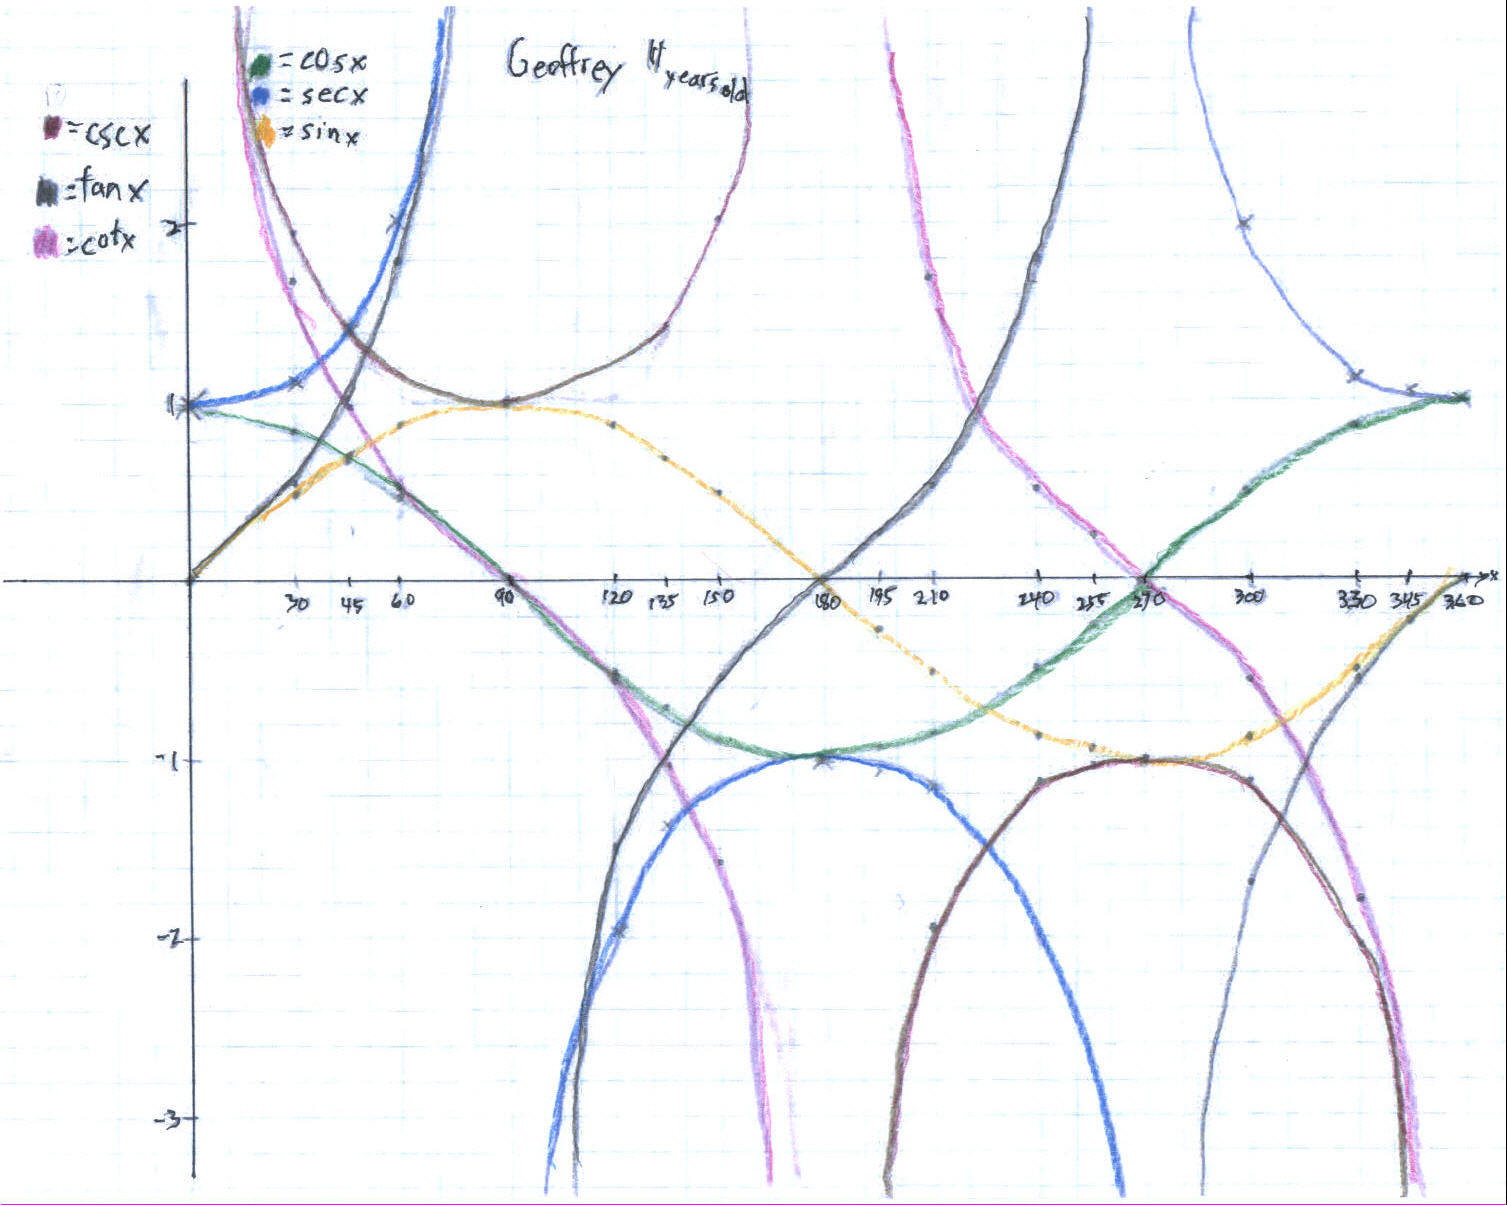 Geoffrey 11
years old
= cosx
= secx
= sinx
= cscx
= tanx
= cotx
2
1
-1
-2
-3
30 45 60 90 120 135 150 180 195 210 240 255 270 300 330 345 360 x